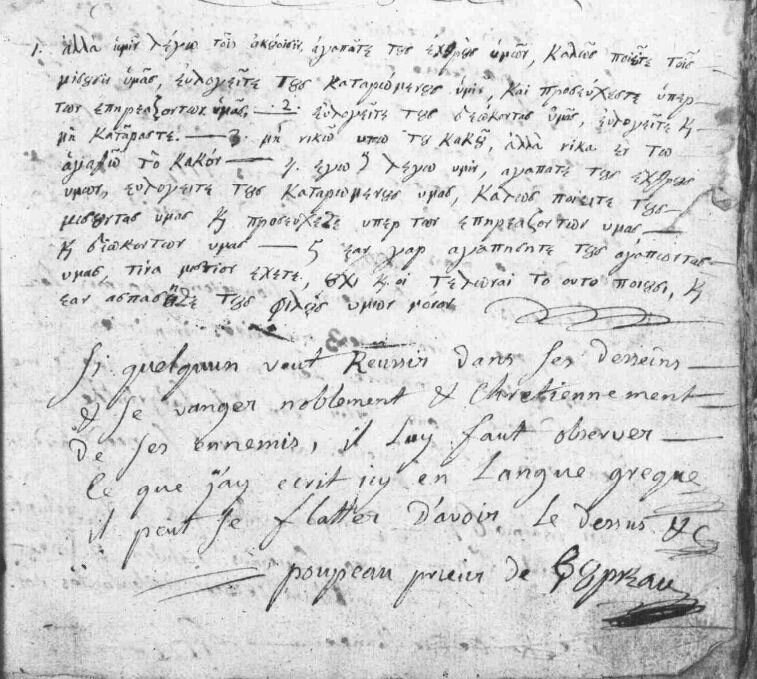 1. ἀλλὰ ὑμῖν λέγω τοῖς ἀκούουσιν, ἀγαπᾶτε τους ἐχθροὺς ὑμῶν, καλῶς ποιεῖτε τοῖς
μισουσιν ὑμᾶς, εὐλογεῖτε τους καταρωμενους ὑμιν, και προσεύχεστε ὑπερ
των επηρεαζοντων ὑμᾶς. 2. ευλογεῖτε τους διώκοντας ὑμᾶς, ευλογεῖτε ϗ
μὴ καταρᾶστε. — 3. μὴ νικῶ υπω του κακοῦ, ἀλλὰ νίκα εν τω
ἀγαθῶ τὸ κακόν — 4. εγω δ λεγω υμιν, αγαπατε τους εχθρους
υμων, ευλογειτε τους καταρωμενους υμας, καλως ποιειτε τους
μισουντας υμας ϗ προσευχεστε υπερ των επηρεαζοντων υμας —
ϗ διωκοντων υμας — 5 εαν γαρ αγαπησητε τους αγαπωντας
υμας, τινα μιστον εχετε, ουχι ϗ οι τελωναι το αυτο ποιουσι, ϗ
εαν ασπασηστε τους φιλους υμων μονον
Si quelquun veut Reussir dans ses desseins
& se vanger noblement & Chretiennement
de ses ennemis, il Luy faut observer
ce que j'ay ecrit icy en Langue greque
il peut se flatter d'avoir Le dessus &c
poupeau prieur de